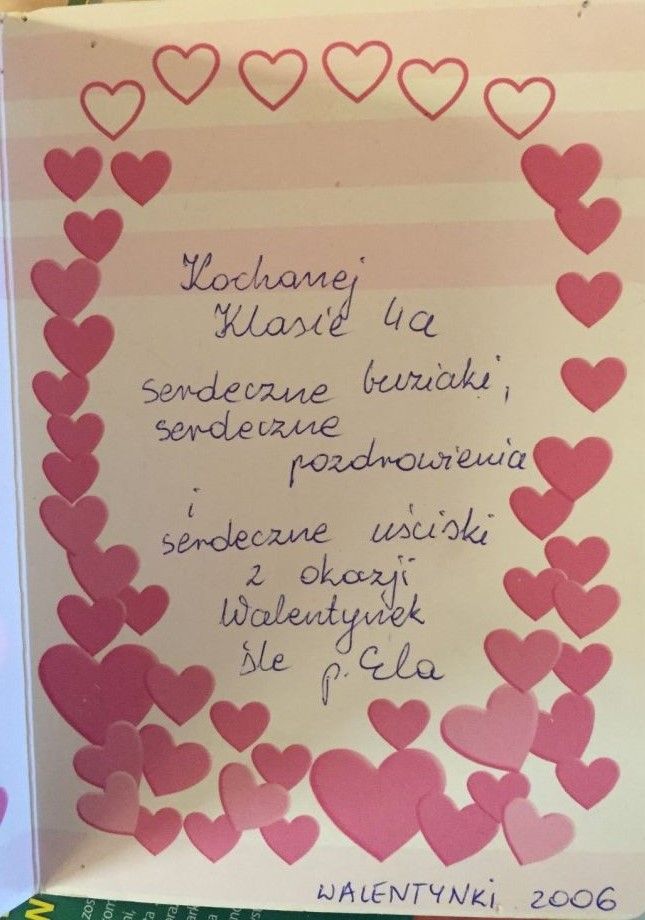 Kochanej
Klasie 4a
serdeczne buziaki,
serdeczne
pozdrowienia
i
serdeczne uściski
z okazji
Walentynek
śle p. Ela
WALENTYNKI 2006